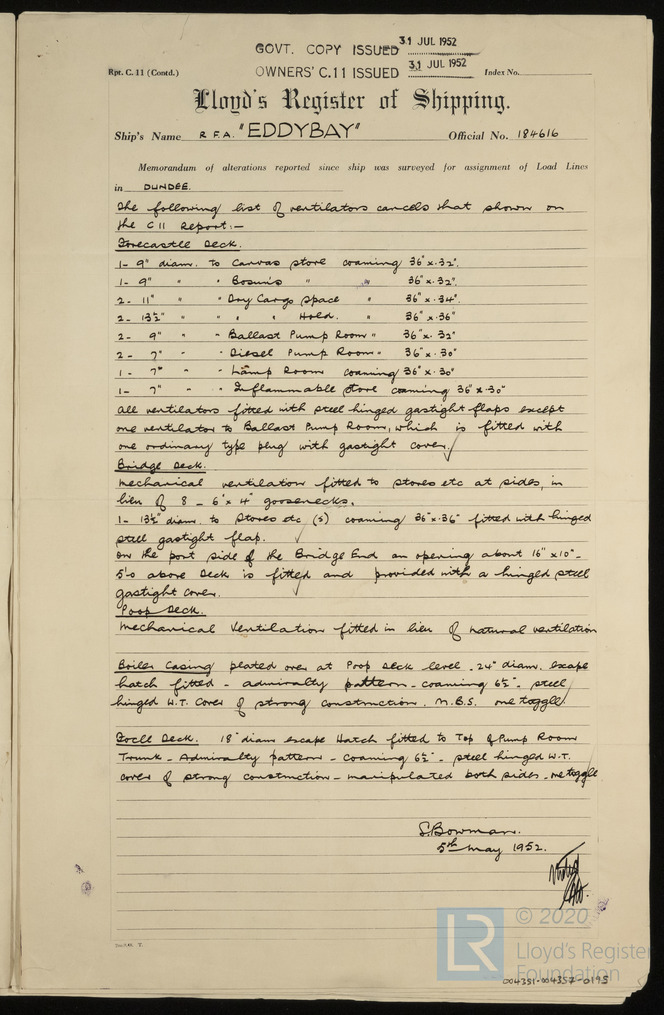 GOVT. COPY ISSUED 31 JUL 1952
Rpt. C. 11 (Contd.) OWNERS' C.11 ISSUED 31 JUL 1952 Index No.
Lloyd's Register of Shipping.
Ship's Name R.F.A. "EDDYBAY" Official No. 184616
Memorandum of alterations reported since ship was surveyed for assignment of Load Lines
in DUNDEE.
The following list of ventilators cancels that shown on
the C11 Report:-
Forecastle Deck.
1- 9" diam. to Canvas store coaming 36" x .32".
1- 9" " " Bosun's " " 36" x .32".
2- 11" " " Dry Cargo Space " 36" x .34".
2- 13½" " " " " Hold. " 36" x .36"
2- 9" " " Ballast Pump Room " 36" x .32"
2- 7" " " Diesel Pump Room " 36" x .30"
1- 7" " " Lamp Room coaming 36" x .30"
1- 7" " " Inflammable store coaming 36" x .30"
All ventilators fitted with steel hinged gastight flaps except
one ventilator to Ballast Pump Room, which is fitted with
one ordinary type plug with gastight cover.
Bridge Deck.
Mechanical ventilation fitted to stores etc at sides, in
lieu of 8 - 6" x 4" goosenecks.
1- 13½" diam. to Stores etc (S) coaming 36" x .36" fitted with hinged
steel gastight flap.
On the port side of the Bridge End an opening about 16" x 10" -
5'0 above Deck is fitted and provided with a hinged steel
gastight cover.
Poop Deck.
Mechanical Ventilation fitted in lieu of natural ventilation
Boiler Casing plated over at Poop Deck level. 24" diam. escape
hatch fitted - admiralty pattern - coaming 6½" - steel
hinged W.T. Cover of strong construction. M.B.S. one toggle
Focle Deck. 18" diam escape Hatch fitted to Top of Pump Room
Trunk - Admiralty pattern - coaming 6½" - steel hinged W.T.
cover of strong construction - manipulated both sides - one toggle
S. Bowman.
5th May 1952.
LR
© 2020
Lloyd's Register
Foundation
004351-004357-0195